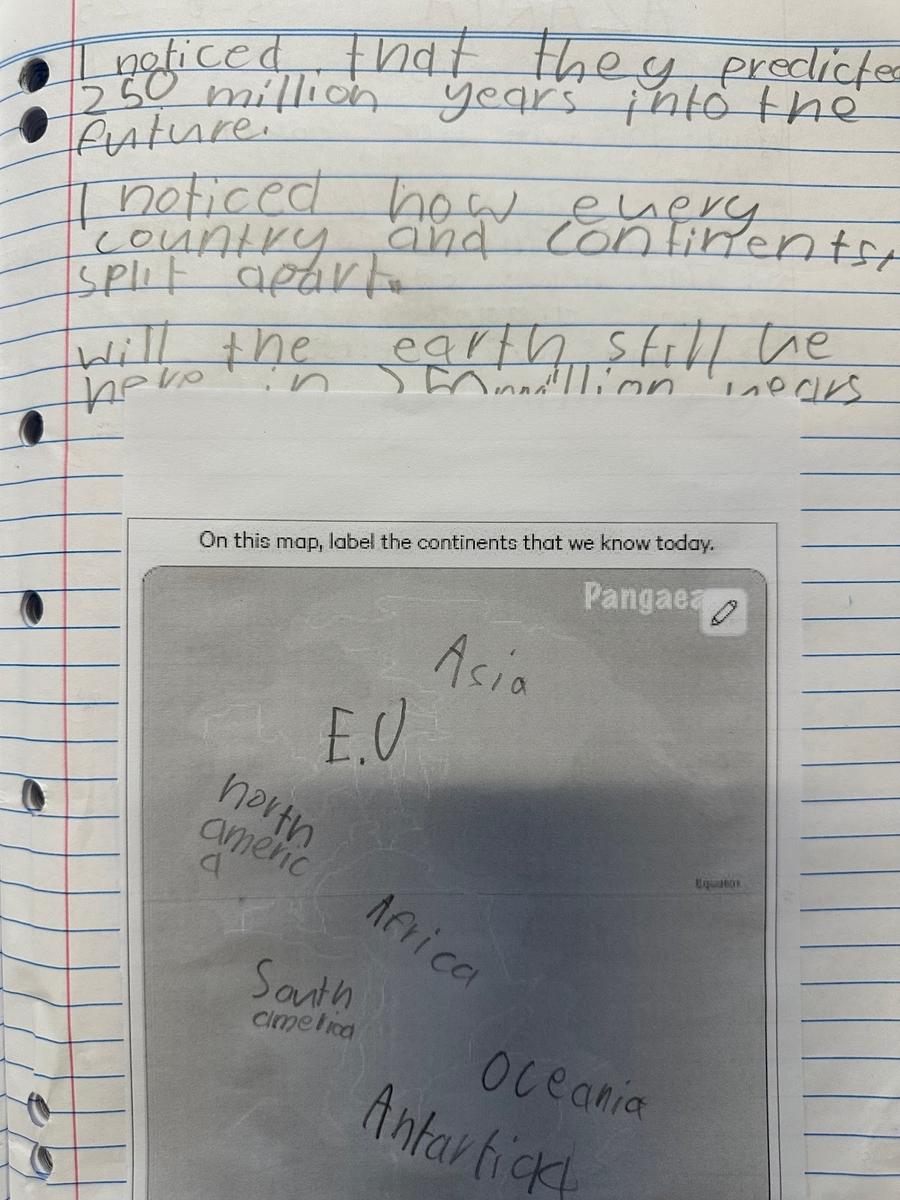 I noticed that they predicted
250 million years into the
future.
I noticed how every
country and continents,
split apart.
will the earth still be
here in 250 million years
On this map, label the continents that we know today.
Pangaea
Asia
E.U
north
americ
a
Equator
Africa
South
america
Oceania
Antartica